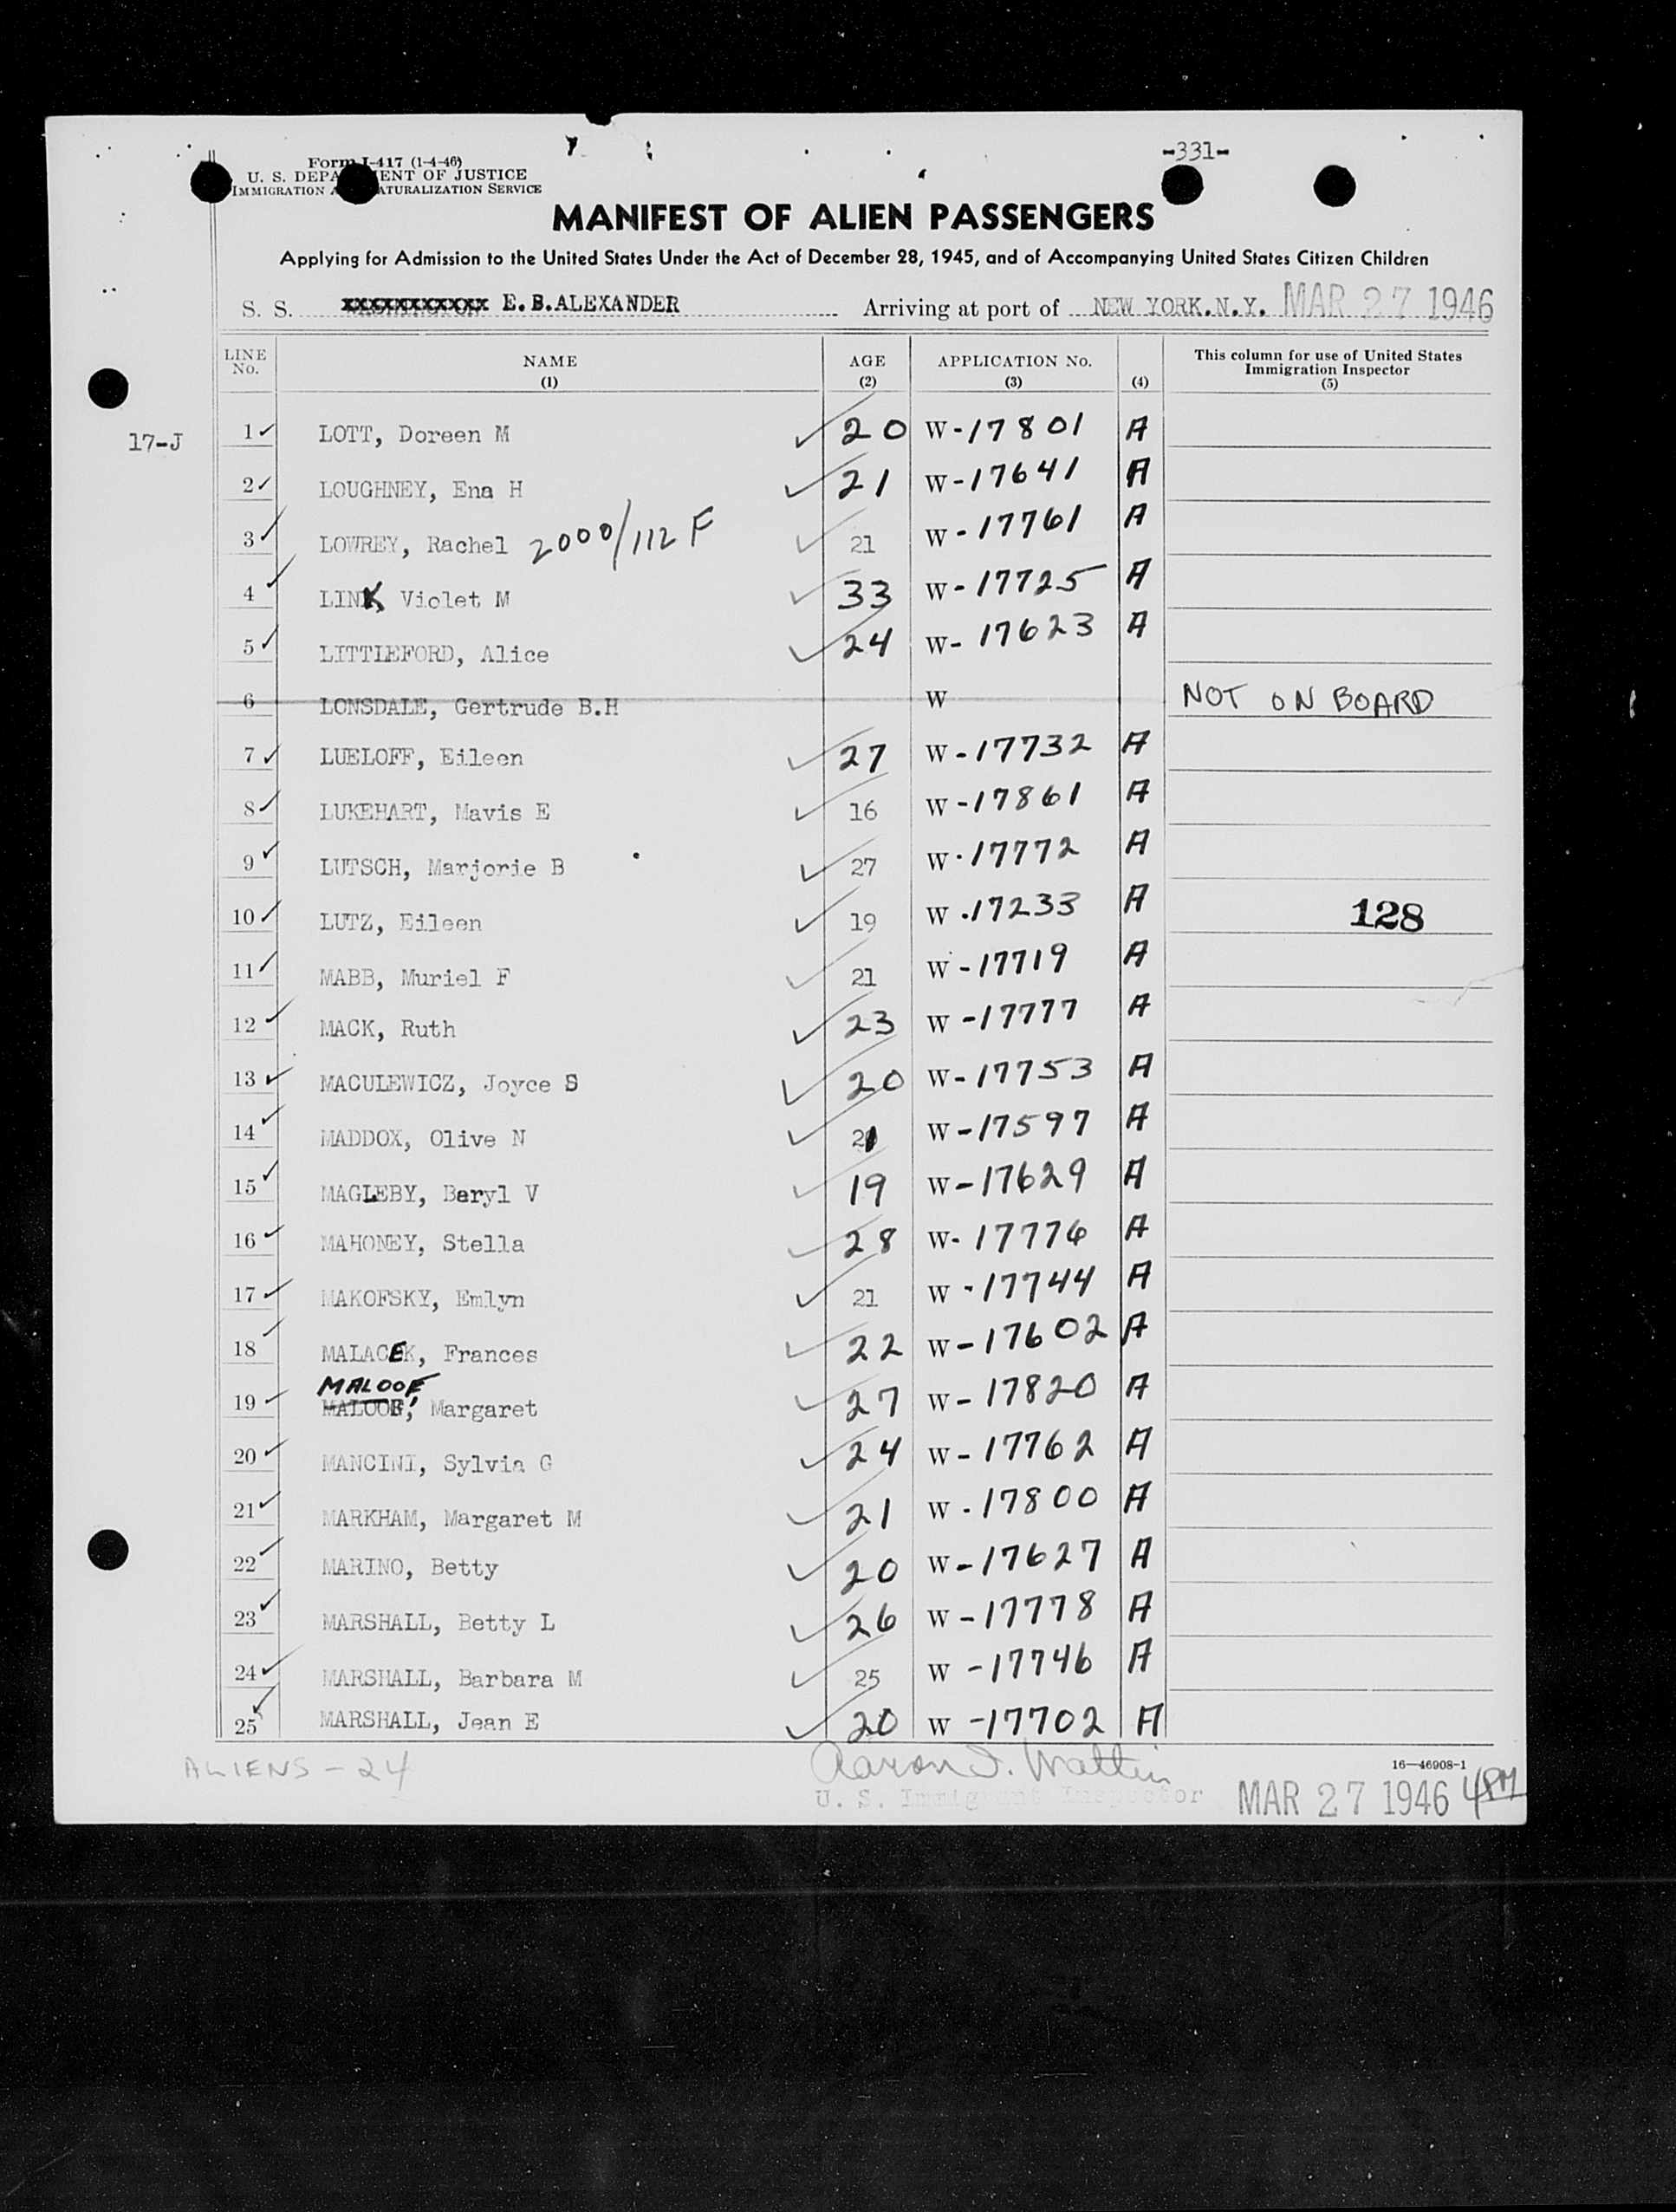 -331-
Form I-417 (1-4-46)
U. S. DEPA ENT OF JUSTICE
IMMIGRATION A ATURALIZATION SERVICE
MANIFEST OF ALIEN PASSENGERS
Applying for Admission to the United States Under the Act of December 28, 1945, and of Accompanying United States Citizen Children
S. S. E.B.ALEXANDER Arriving at port of NEW YORK.N.Y. MAR 27 1946
LINE No. NAME (1) AGE (2) APPLICATION No. (3) (4) This column for use of United States Immigration Inspector (5)
17-J 1 LOTT, Doreen M 20 W-17801 A
2 LOUGHNEY, Ena H 21 W-17641 A
3 LOWREY, Rachel 2000/112 F 21 W-17761 A
4 LINK, Violet M 33 W-17725 A
5 LITTLEFORD, Alice 24 W-17623 A
6 LONSDALE, Gertrude B.H W NOT ON BOARD
7 LUELOFF, Eileen 27 W-17732 A
8 LUKEHART, Mavis E 16 W-17861 A
9 LUTSCH, Marjorie B 27 W-17772 A
10 LUTZ, Eileen 19 W-17233 A 128
11 MABB, Muriel F 21 W-17719 A
12 MACK, Ruth 23 W-17777 A
13 MACULEWICZ, Joyce S 20 W-17753 A
14 MADDOX, Olive N 21 W-17597 A
15 MAGLEBY, Beryl V 19 W-17629 A
16 MAHONEY, Stella 28 W-17776 A
17 MAKOFSKY, Emlyn 21 W-17744 A
18 MALACEK, Frances 22 W-17602 A
MALOOF,
19 Margaret 27 W-17820 A
20 MANCINI, Sylvia G 24 W-17762 A
21 MARKHAM, Margaret M 21 W-17800 A
22 MARINO, Betty 20 W-17627 A
23 MARSHALL, Betty L 26 W-17778 A
24 MARSHALL, Barbara M 25 W-17746 A
25 MARSHALL, Jean E 20 W-17702 A
ALIENS - 24 Aaron I. 16—46908-1
U. S. Immigrant Inspector MAR 27 1946 4PM